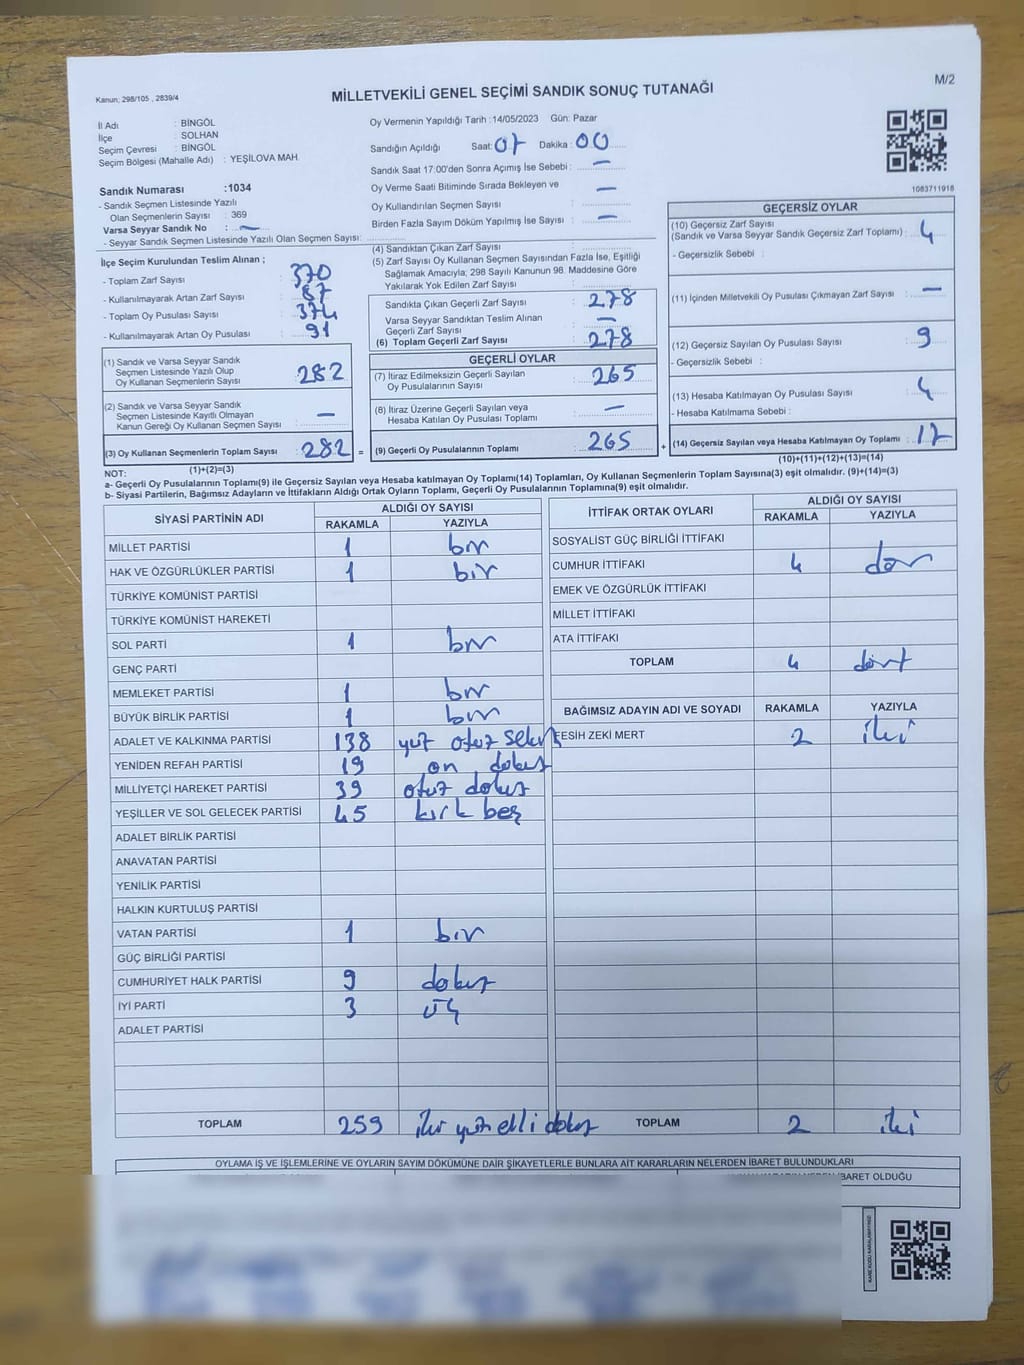 Kanun; 298/105 , 2839/4
MİLLETVEKİLİ GENEL SEÇİMİ SANDIK SONUÇ TUTANAĞI
M/2
İl Adı : BİNGÖL
İlçe : SOLHAN
Seçim Çevresi : BİNGÖL
Seçim Bölgesi (Mahalle Adı) : YEŞİLOVA MAH.
Sandık Numarası :1034
- Sandık Seçmen Listesinde Yazılı
Olan Seçmenlerin Sayısı : 369
Varsa Seyyar Sandık No : —
- Seyyar Sandık Seçmen Listesinde Yazılı Olan Seçmen Sayısı:
İlçe Seçim Kurulundan Teslim Alınan ;
- Toplam Zarf Sayısı : 370
- Kullanılmayarak Artan Zarf Sayısı : 87
- Toplam Oy Pusulası Sayısı : 374
- Kullanılmayarak Artan Oy Pusulası : 91
(1) Sandık ve Varsa Seyyar Sandık
Seçmen Listesinde Yazılı Olup
Oy Kullanan Seçmenlerin Sayısı : 282
(2) Sandık ve Varsa Seyyar Sandık
Seçmen Listesinde Kayıtlı Olmayan
Kanun Gereği Oy Kullanan Seçmen Sayısı : —
(3) Oy Kullanan Seçmenlerin Toplam Sayısı : 282 =
(1)+(2)=(3)
Oy Vermenin Yapıldığı Tarih :14/05/2023 Gün: Pazar
Sandığın Açıldığı Saat: 07 Dakika : 00
Sandık Saat 17:00'den Sonra Açımış İse Sebebi : —
Oy Verme Saati Bitiminde Sırada Bekleyen ve
Oy Kullandırılan Seçmen Sayısı : —
Birden Fazla Sayım Döküm Yapılmış İse Sayısı : —
(4) Sandıktan Çıkan Zarf Sayısı :
(5) Zarf Sayısı Oy Kullanan Seçmen Sayısından Fazla İse, Eşitliği
Sağlamak Amacıyla; 298 Sayılı Kanunun 98. Maddesine Göre
Yakılarak Yok Edilen Zarf Sayısı :
Sandıkta Çıkan Geçerli Zarf Sayısı : 278
Varsa Seyyar Sandıktan Teslim Alınan
Geçerli Zarf Sayısı : —
(6) Toplam Geçerli Zarf Sayısı : 278
GEÇERLİ OYLAR
(7) İtiraz Edilmeksizin Geçerli Sayılan
Oy Pusulalarının Sayısı : 265
(8) İtiraz Üzerine Geçerli Sayılan veya
Hesaba Katılan Oy Pusulası Toplamı : —
(9) Geçerli Oy Pusulalarının Toplamı : 265 +
1083711918
GEÇERSİZ OYLAR
(10) Geçersiz Zarf Sayısı
(Sandık ve Varsa Seyyar Sandık Geçersiz Zarf Toplamı) : 4
- Geçersizlik Sebebi :
(11) İçinden Milletvekili Oy Pusulası Çıkmayan Zarf Sayısı : —
(12) Geçersiz Sayılan Oy Pusulası Sayısı : 9
- Geçersizlik Sebebi :
(13) Hesaba Katılmayan Oy Pusulası Sayısı : 4
- Hesaba Katılmama Sebebi :
(14) Geçersiz Sayılan veya Hesaba Katılmayan Oy Toplamı : 17
(10)+(11)+(12)+(13)=(14)
NOT:
a- Geçerli Oy Pusulalarının Toplamı(9) ile Geçersiz Sayılan veya Hesaba katılmayan Oy Toplamı(14) Toplamları, Oy Kullanan Seçmenlerin Toplam Sayısına(3) eşit olmalıdır. (9)+(14)=(3)
b- Siyasi Partilerin, Bağımsız Adayların ve İttifakların Aldığı Ortak Oyların Toplamı, Geçerli Oy Pusulalarının Toplamına(9) eşit olmalıdır.
SİYASİ PARTİNİN ADI ALDIĞI OY SAYISI
RAKAMLA YAZIYLA
MİLLET PARTİSİ 1 bir
HAK VE ÖZGÜRLÜKLER PARTİSİ 1 bir
TÜRKİYE KOMÜNİST PARTİSİ
TÜRKİYE KOMÜNİST HAREKETİ
SOL PARTİ 1 bir
GENÇ PARTİ
MEMLEKET PARTİSİ 1 bir
BÜYÜK BİRLİK PARTİSİ 1 bir
ADALET VE KALKINMA PARTİSİ 138 yüz otuz sekiz
YENİDEN REFAH PARTİSİ 19 on dokuz
MİLLİYETÇİ HAREKET PARTİSİ 39 otuz dokuz
YEŞİLLER VE SOL GELECEK PARTİSİ 45 kırk beş
ADALET BİRLİK PARTİSİ
ANAVATAN PARTİSİ
YENİLİK PARTİSİ
HALKIN KURTULUŞ PARTİSİ
VATAN PARTİSİ 1 bir
GÜÇ BİRLİĞİ PARTİSİ
CUMHURİYET HALK PARTİSİ 9 dokuz
İYİ PARTİ 3 üç
ADALET PARTİSİ
TOPLAM 259 iki yüz elli dokuz
İTTİFAK ORTAK OYLARI ALDIĞI OY SAYISI
RAKAMLA YAZIYLA
SOSYALİST GÜÇ BİRLİĞİ İTTİFAKI
CUMHUR İTTİFAKI 4 dör
EMEK VE ÖZGÜRLÜK İTTİFAKI
MİLLET İTTİFAKI
ATA İTTİFAKI
TOPLAM 4 dört
BAĞIMSIZ ADAYIN ADI VE SOYADI RAKAMLA YAZIYLA
FESİH ZEKİ MERT 2 iki
TOPLAM 2 iki
OYLAMA İŞ VE İŞLEMLERİNE VE OYLARIN SAYIM DÖKÜMÜNE DAİR ŞİKAYETLERLE BUNLARA AİT KARARLARIN NELERDEN İBARET BULUNDUKLARI
İBARET OLDUĞU